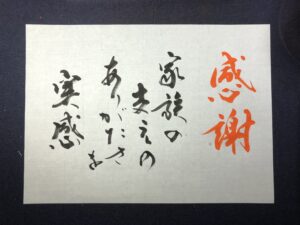 感謝
家族の
支えの
ありがたさを
実感